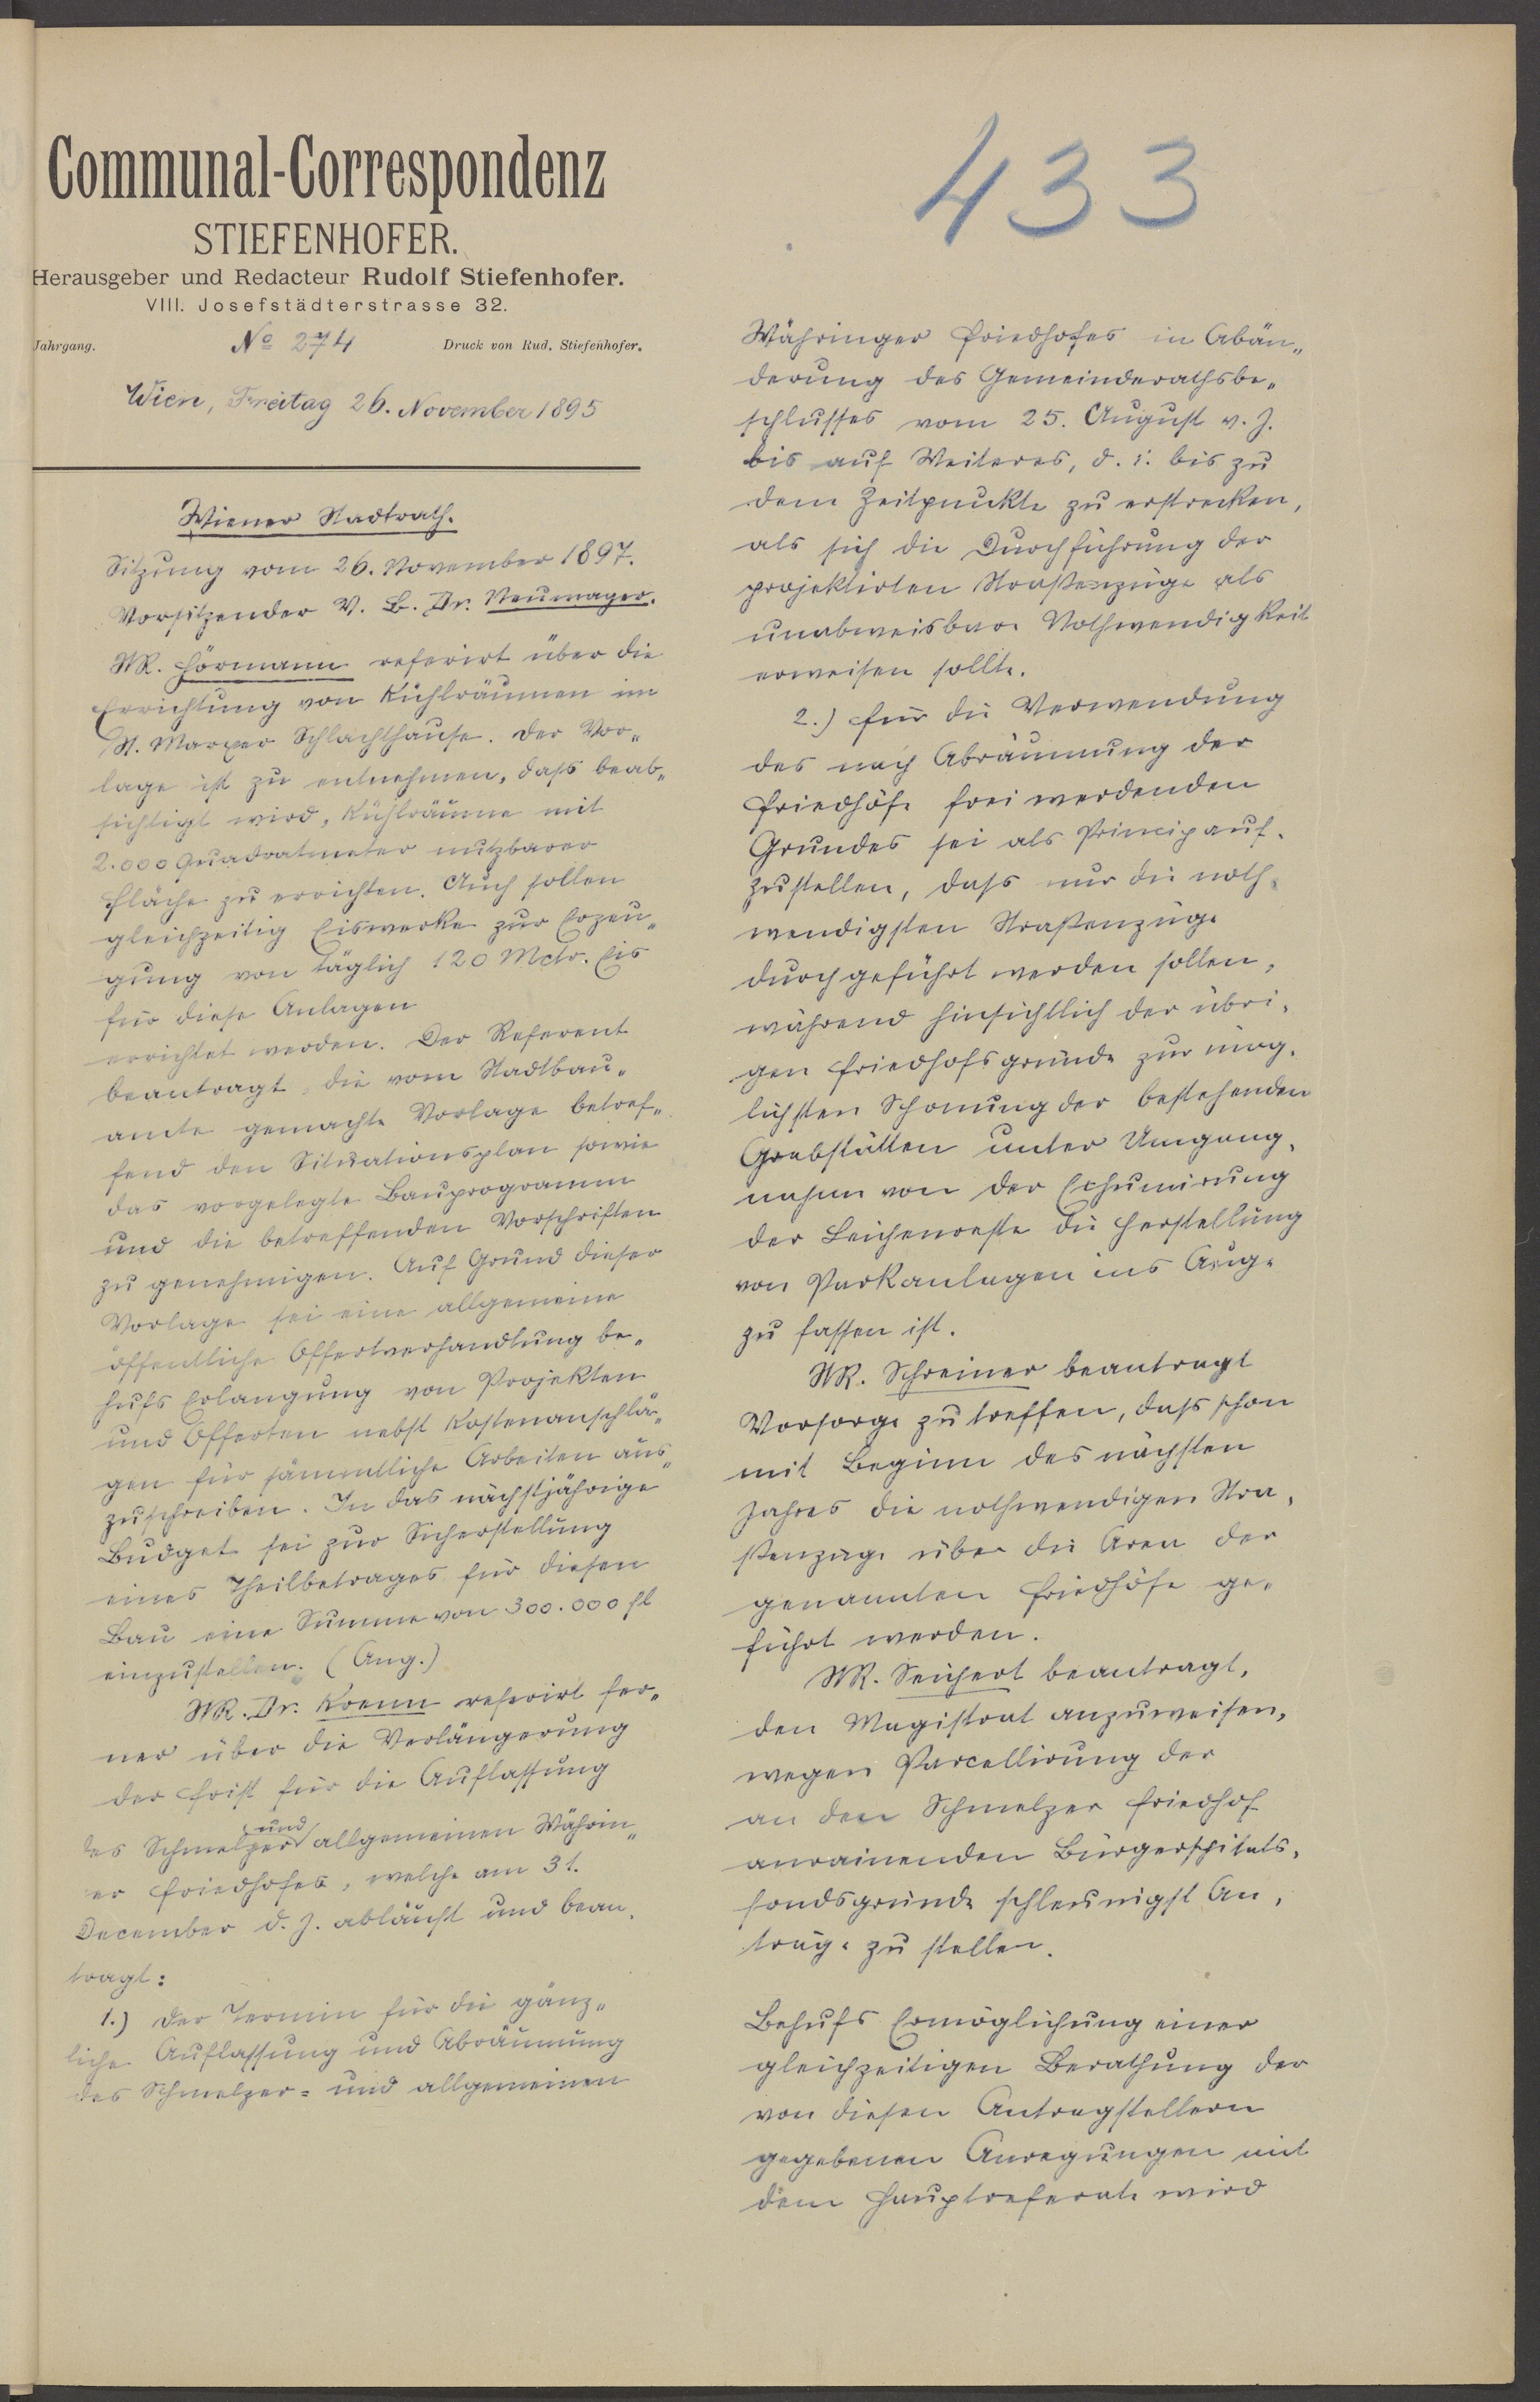 Communal-Correspondenz
STIEFENHOFER.
Herausgeber und Redacteur Rudolf Stiefenhofer.
VIII. Josefstädterstrasse 32.
Jahrgang. No 274 Druck von Rud. Stiefenhofer.
Wien, Freitag 26. November 1895
Wiener Stadtrath.
Sitzung vom 26. November 1897.
Vorsitzender V. B. Dr. Neumayer.
StR. Hörmann referirt über die
Errichtung von Kühlräumen im
St. Marxer Schlachthause. Der Vor„
lage ist zu entnehmen, dass beab„
sichtigt wird, Kühlräume mit
2.000 Quadratmeter nutzbarer
Fläche zu errichten. Auch sollen
gleichzeitig Eiswerke zur Erzeu„
gung von täglich 120 Mctr. Eis
für diese Anlagen
errichtet werden. Der Referent
beantragt, die vom Stadtbau„
amte gemachte Vorlage betref„
fend den Situationsplan sowie
das vorgelegte Bauprogramm
und die betreffenden Vorschriften
zu genehmigen. Auf Grund dieser
Vorlage sei eine allgemeine
öffentliche Offertverhandlung be„
hufs Erlangung von Projekten
und Offerten nebst Kostenanschlä„
gen für sämmtliche Arbeiten aus„
zuschreiben. In das nächstjährige
Budget sei zur Sicherstellung
eines Theilbetrages für diesen
Bau eine Summe von 300.000 fl
einzustellen. (Ang.)
StR. Dr. Krenn referirt fer„
ner über die Verlängerung
der Frist für die Auflassung
des Schmelzer und allgemeinen Währin„
er Friedhofes, welche am 31.
December d. J. abläuft und bean„
tragt:
1.) Der Termin für die gänz„
liche Auflassung und Abräumung
des Schmelzer- und allgemeinen
433
Währinger Friedhofes in Abän„
derung des Gemeinderathsbe„
schlusses vom 25. August v. J.
bis auf Weiteres, d. i. bis zu
dem Zeitpunkte zu erstrecken,
als sich die Durchführung der
projektirten Straßenzüge als
unabweisbare Nothwendigkeit
erweisen sollte.
2.) Für die Verwendung
des nach Abräumung der
Friedhöfe frei werdenden
Grundes sei als Princip auf„
zustellen, dass nur die noth„
wendigsten Straßenzüge
durchgeführt werden sollen,
während hinsichtlich der übri„
gen Friedhofsgründe zur mög„
lichsten Schonung der bestehenden
Grabstätten unter Umgang„
nahme von der Exhumirung
der Leichenreste die Herstellung
von Parkanlagen ins Auge
zu fassen ist.
StR. Schreiner beantragt
Vorsorge zu treffen, dass schon
mit Beginn des nächsten
Jahres die nothwendigen Stra„
ßenzüge über die Area der
genannten Friedhöfe ge„
führt werden.
StR. Seichert beantragt,
den Magistrat anzuweisen,
wegen Parcellirung der
an den Schmelzer Friedhof
anrainenden Bürgerspitals„
fondsgründe schleunigst An„
träge zu stellen.
Behufs Ermöglichung einer
gleichzeitigen Berathung der
von diesen Antragstellern
gegebenen Anregungen mit
dem Hauptreferate wird